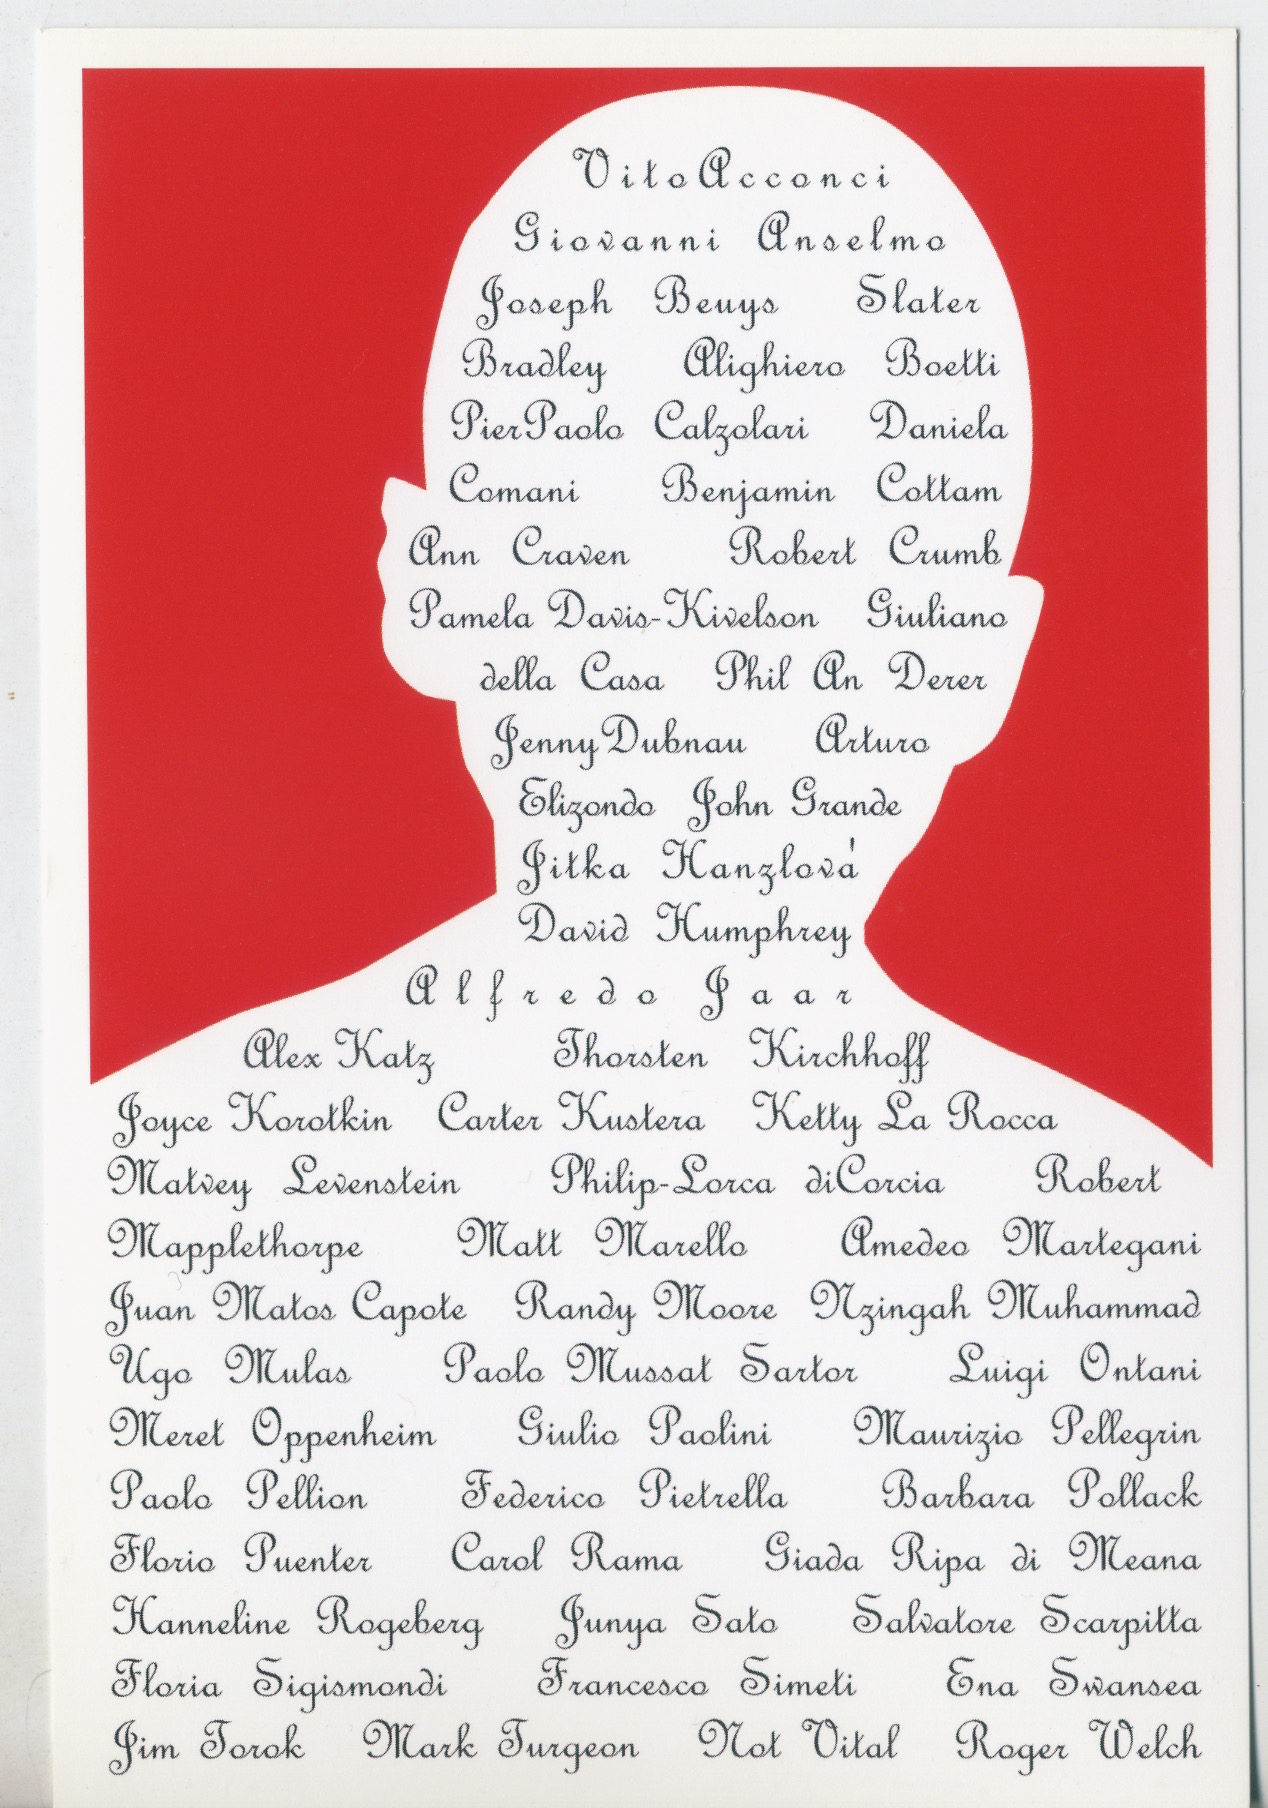 Vito Acconci
Giovanni Anselmo
Joseph Beuys Slater
Bradley Alighiero Boetti
PierPaolo Calzolari Daniela
Comani Benjamin Cottam
Ann Craven Robert Crumb
Pamela Davis-Kivelson Giuliano
della Casa Phil An Derer
Jenny Dubnau Arturo
Elizondo John Grande
Jitka Hanzlová
David Humphrey
Alfredo Jaar
Alex Katz Thorsten Kirchhoff
Joyce Korotkin Carter Kustera Ketty La Rocca
Matvey Levenstein Philip-Lorca diCorcia Robert
Mapplethorpe Matt Marello Amedeo Martegani
Juan Matos Capote Randy Moore Nzingah Muhammad
Ugo Mulas Paolo Mussat Sartor Luigi Ontani
Meret Oppenheim Giulio Paolini Maurizio Pellegrin
Paolo Pellion Federico Pietrella Barbara Pollack
Florio Puenter Carol Rama Giada Ripa di Meana
Hanneline Rogeberg Junya Sato Salvatore Scarpitta
Floria Sigismondi Francesco Simeti Ena Swansea
Jim Torok Mark Turgeon Not Vital Roger Welch